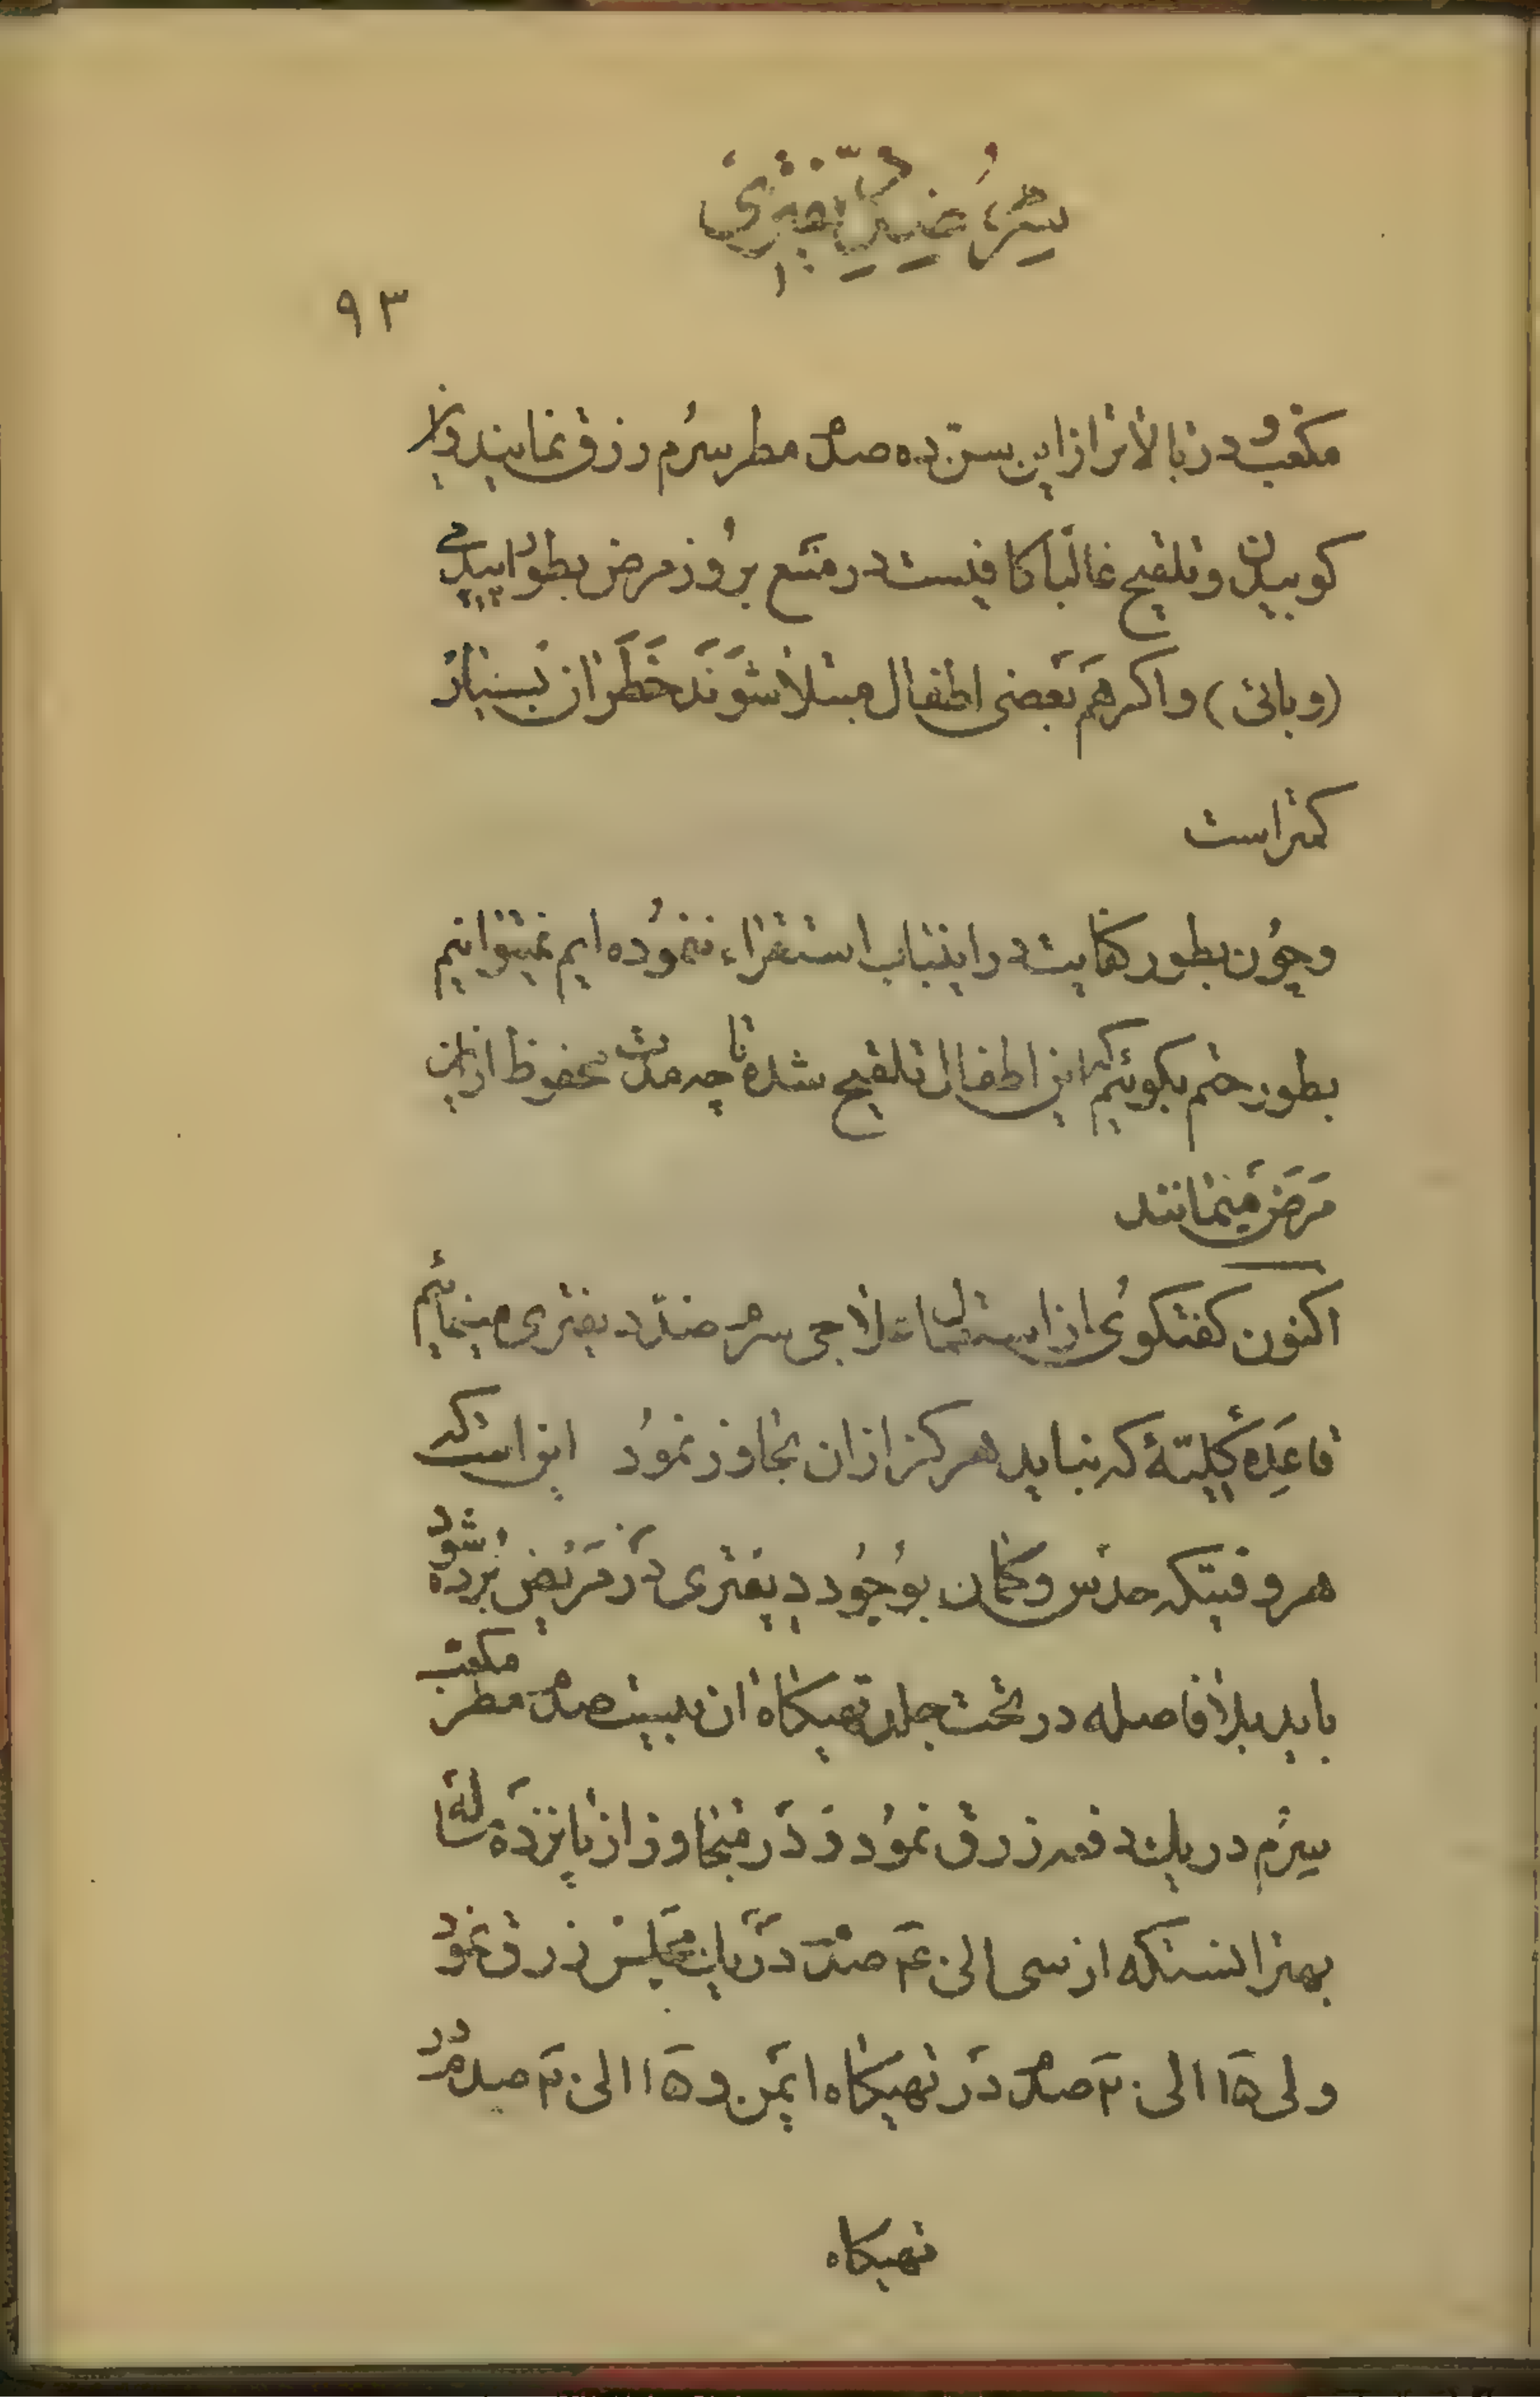 سرم ضد دیفتری
۹۳
مکعب و در بالاتر از این سن ده صدم مطر سرم زرق نمایند و این
کوبیدن و تلقیح غالباً کافیست در منع بروز مرض بطور اپیدمی
(وبائی) و اگر هم بعضی اطفال مبتلا شوند خطر ان بسیار
کمتر است
و چون بطور کفایت در اینباب استقراء ننموده ایم نمیتوانیم
بطور حتم بکوئیم که این اطفال تلقیح شده تا چه مدت محفوظ از این
مرض میمانند
اکنون کفتکوی از استعمال علاجی سرم ضد دیفتری مینمائیم
قاعده کلیّهٔ که نباید هرکز از ان تجاوز نمود این است که
هر وقتیکه حدس و کمان بوجود دیفتری در مریض برده شود
باید بلافاصله در تحت جلد تهیکاه ان بیست صدم مطر مکعب
سرم در یک دفعه زرق نمود و در متجاوز از پانزده ساله
بهتر انستکه از سی الی ۴۰ صدم در یک مجلس زرق نمود
ولی ۱۵ الی ۲۰ صدم در تهیکاه ایمن و ۱۵ الی ۲۰ صدم در
تهیکاه